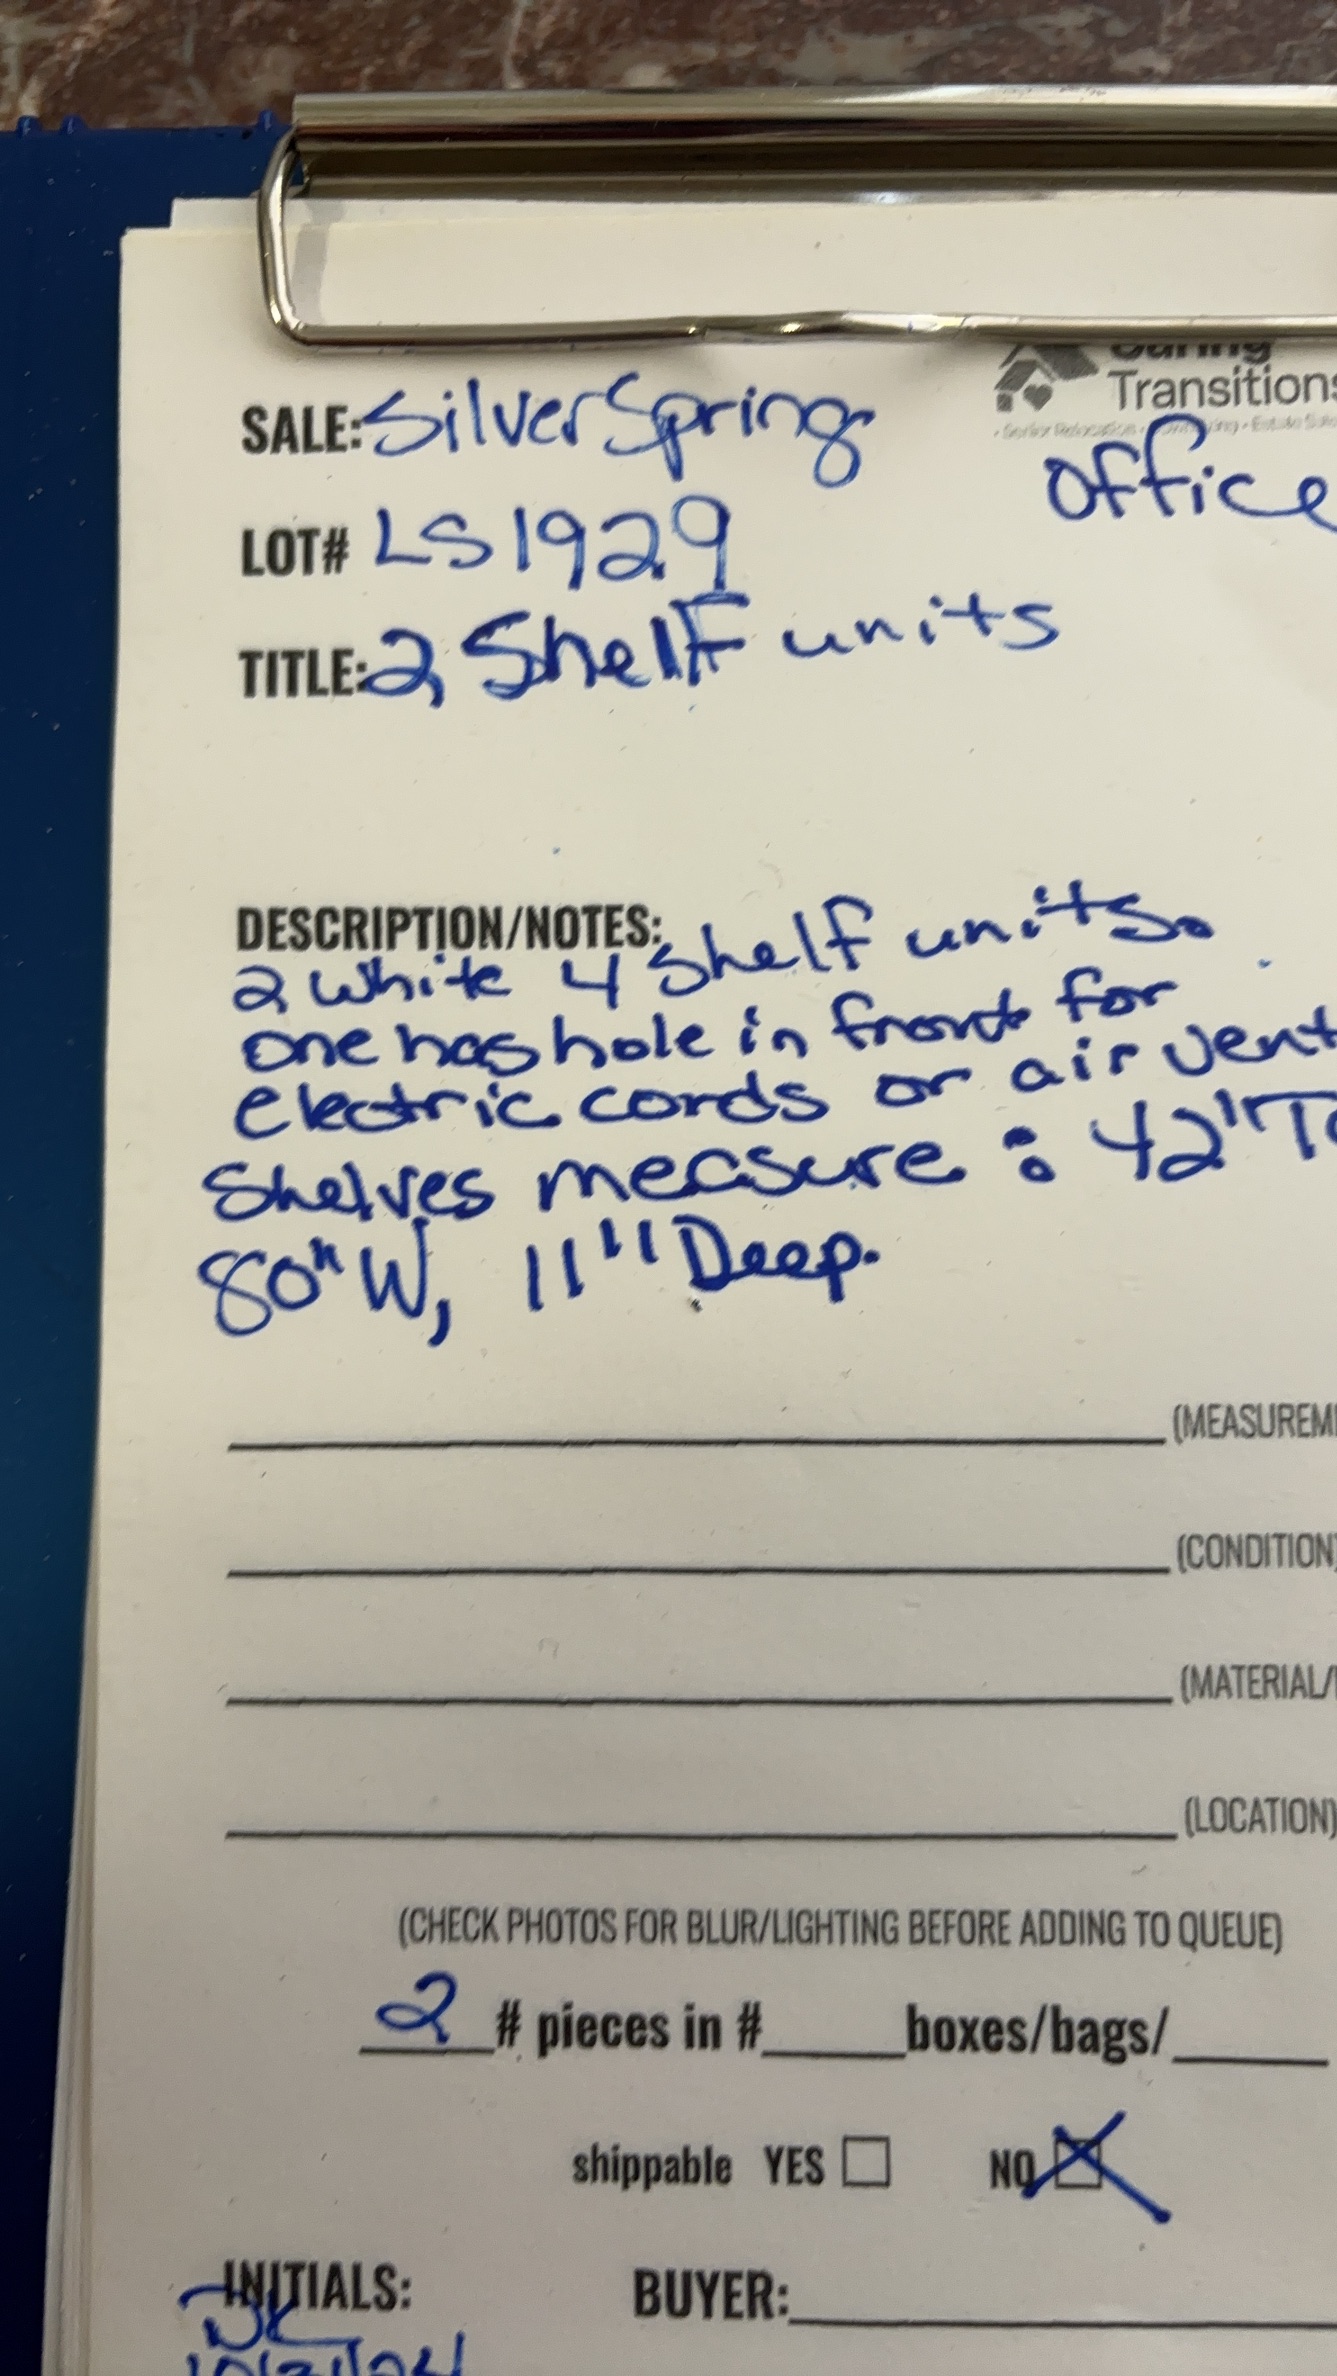 Transitions
SALE: Silver Spring
Office
LOT# LS1929
TITLE: 2 Shelf units
DESCRIPTION/NOTES:
2 white 4 shelf units.
one has hole in front for
electric cords or air vent
Shelves measure : 42" T
80" W, 11" Deep.
(MEASUREM
(CONDITION)
(MATERIAL/
(LOCATION)
(CHECK PHOTOS FOR BLUR/LIGHTING BEFORE ADDING TO QUEUE)
2 # pieces in # boxes/bags/
shippable YES NO
INITIALS: BUYER: